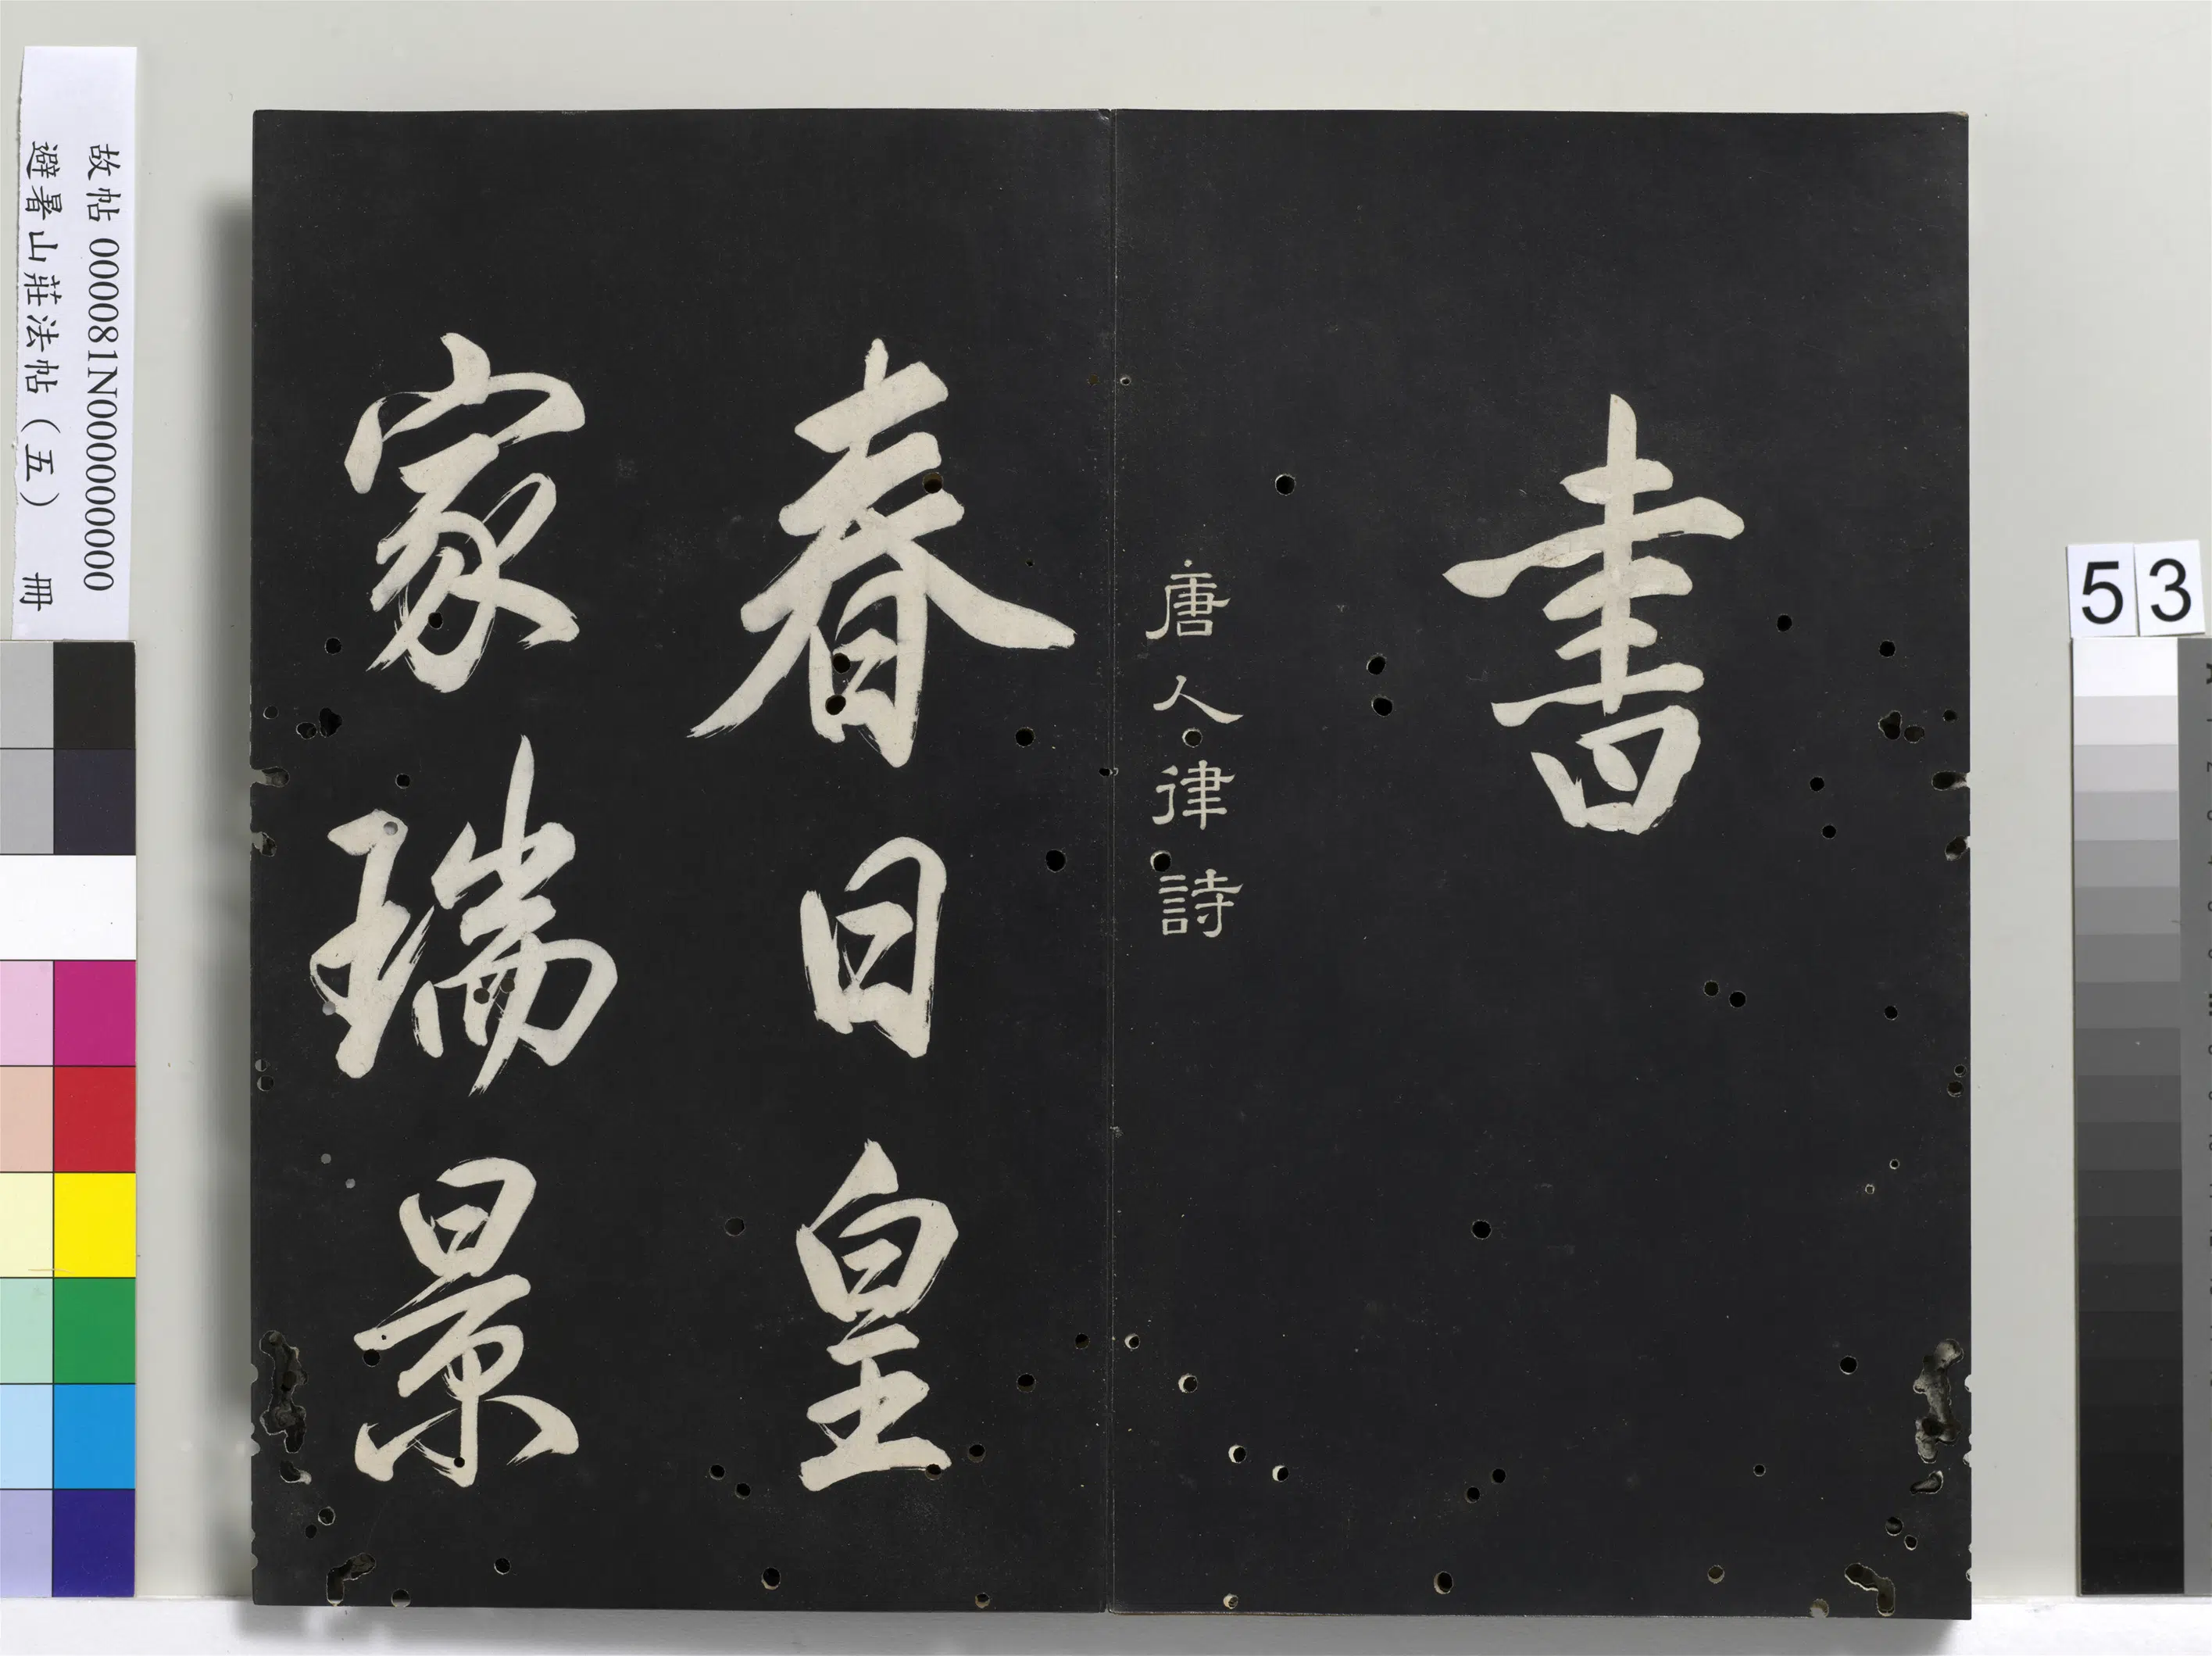 書
唐人律詩
春日皇
家瑞景
故帖 000081N000000000
避暑山莊法帖（五） 冊
53